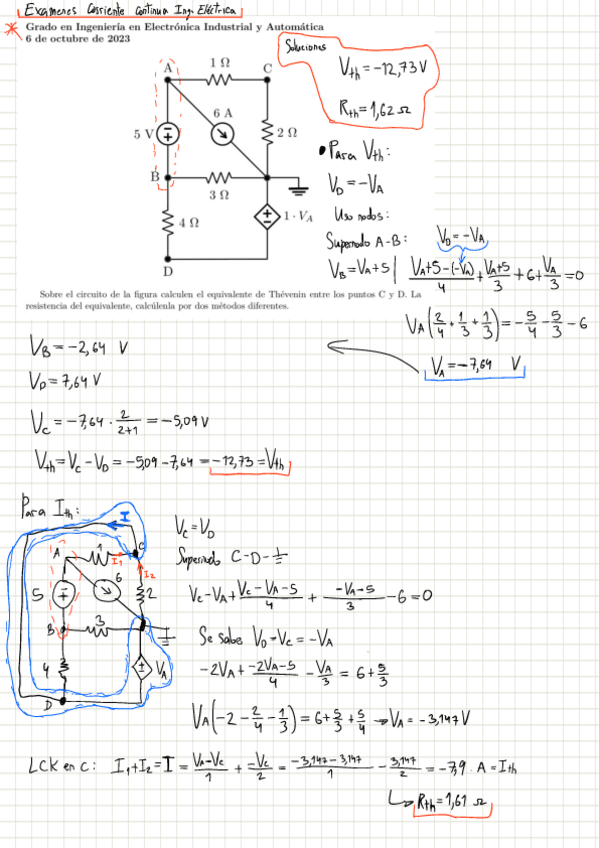 Examenes Corriente Continua Ing. Eléctrica
Grado en Ingeniería en Electrónica Industrial y Automática
6 de octubre de 2023
Soluciones
V_th = -12,73 V
R_th = 1,62 Ω
A
1 Ω
C
6 A
5 V
2 Ω
B
3 Ω
4 Ω
1 · V_A
D
• Para V_th:
V_D = -V_A
Uso nodos:
Supernodo A-B:
V_D = -V_A
V_B = V_A + 5 | (V_A+5-(-V_A))/4 + (V_A+5)/3 + 6 + V_A/3 = 0
Sobre el circuito de la figura calculen el equivalente de Thévenin entre los puntos C y D. La
resistencia del equivalente, calcúlenla por dos métodos diferentes.
V_A (2/4 + 1/3 + 1/3) = -5/4 - 5/3 - 6
V_A = -7,64 V
V_B = -2,64 V
V_D = 7,64 V
V_C = -7,64 · 2/(2+1) = -5,09 V
V_th = V_C - V_D = -5,09 - 7,64 = -12,73 = V_th
Para I_th:
I
A
1
C
I_1
I_2
6
5
2
B
3
4
V_A
D
V_C = V_D
Supernodo C-D-⏚
V_C - V_A + (V_C - V_A - 5)/4 + (-V_A - 5)/3 - 6 = 0
Se sabe V_D = V_C = -V_A
-2V_A + (-2V_A - 5)/4 - V_A/3 = 6 + 5/3
V_A (-2 - 2/4 - 1/3) = 6 + 5/3 + 5/4 → V_A = -3,147 V
LCK en C: I_1 + I_2 = I = (V_A - V_C)/1 + (-V_C)/2 = (-3,147 - 3,147)/1 - 3,147/2 = -7,9 · A = I_th
↳ R_th = 1,61 Ω